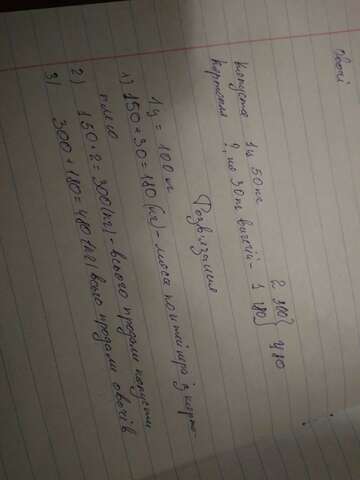 овочі
капуста 1ц 50кг 2 300
картопля ?, на 30кг 1 180 480
Розв'язання
1ц = 100 кг
1) 150 + 30 = 180 (кг) - маса контейнера із карто-
плею
2) 150 · 2 = 300 (кг) - всього продали капусти
3) 300 + 180 = 480 (кг) всього продали овочів